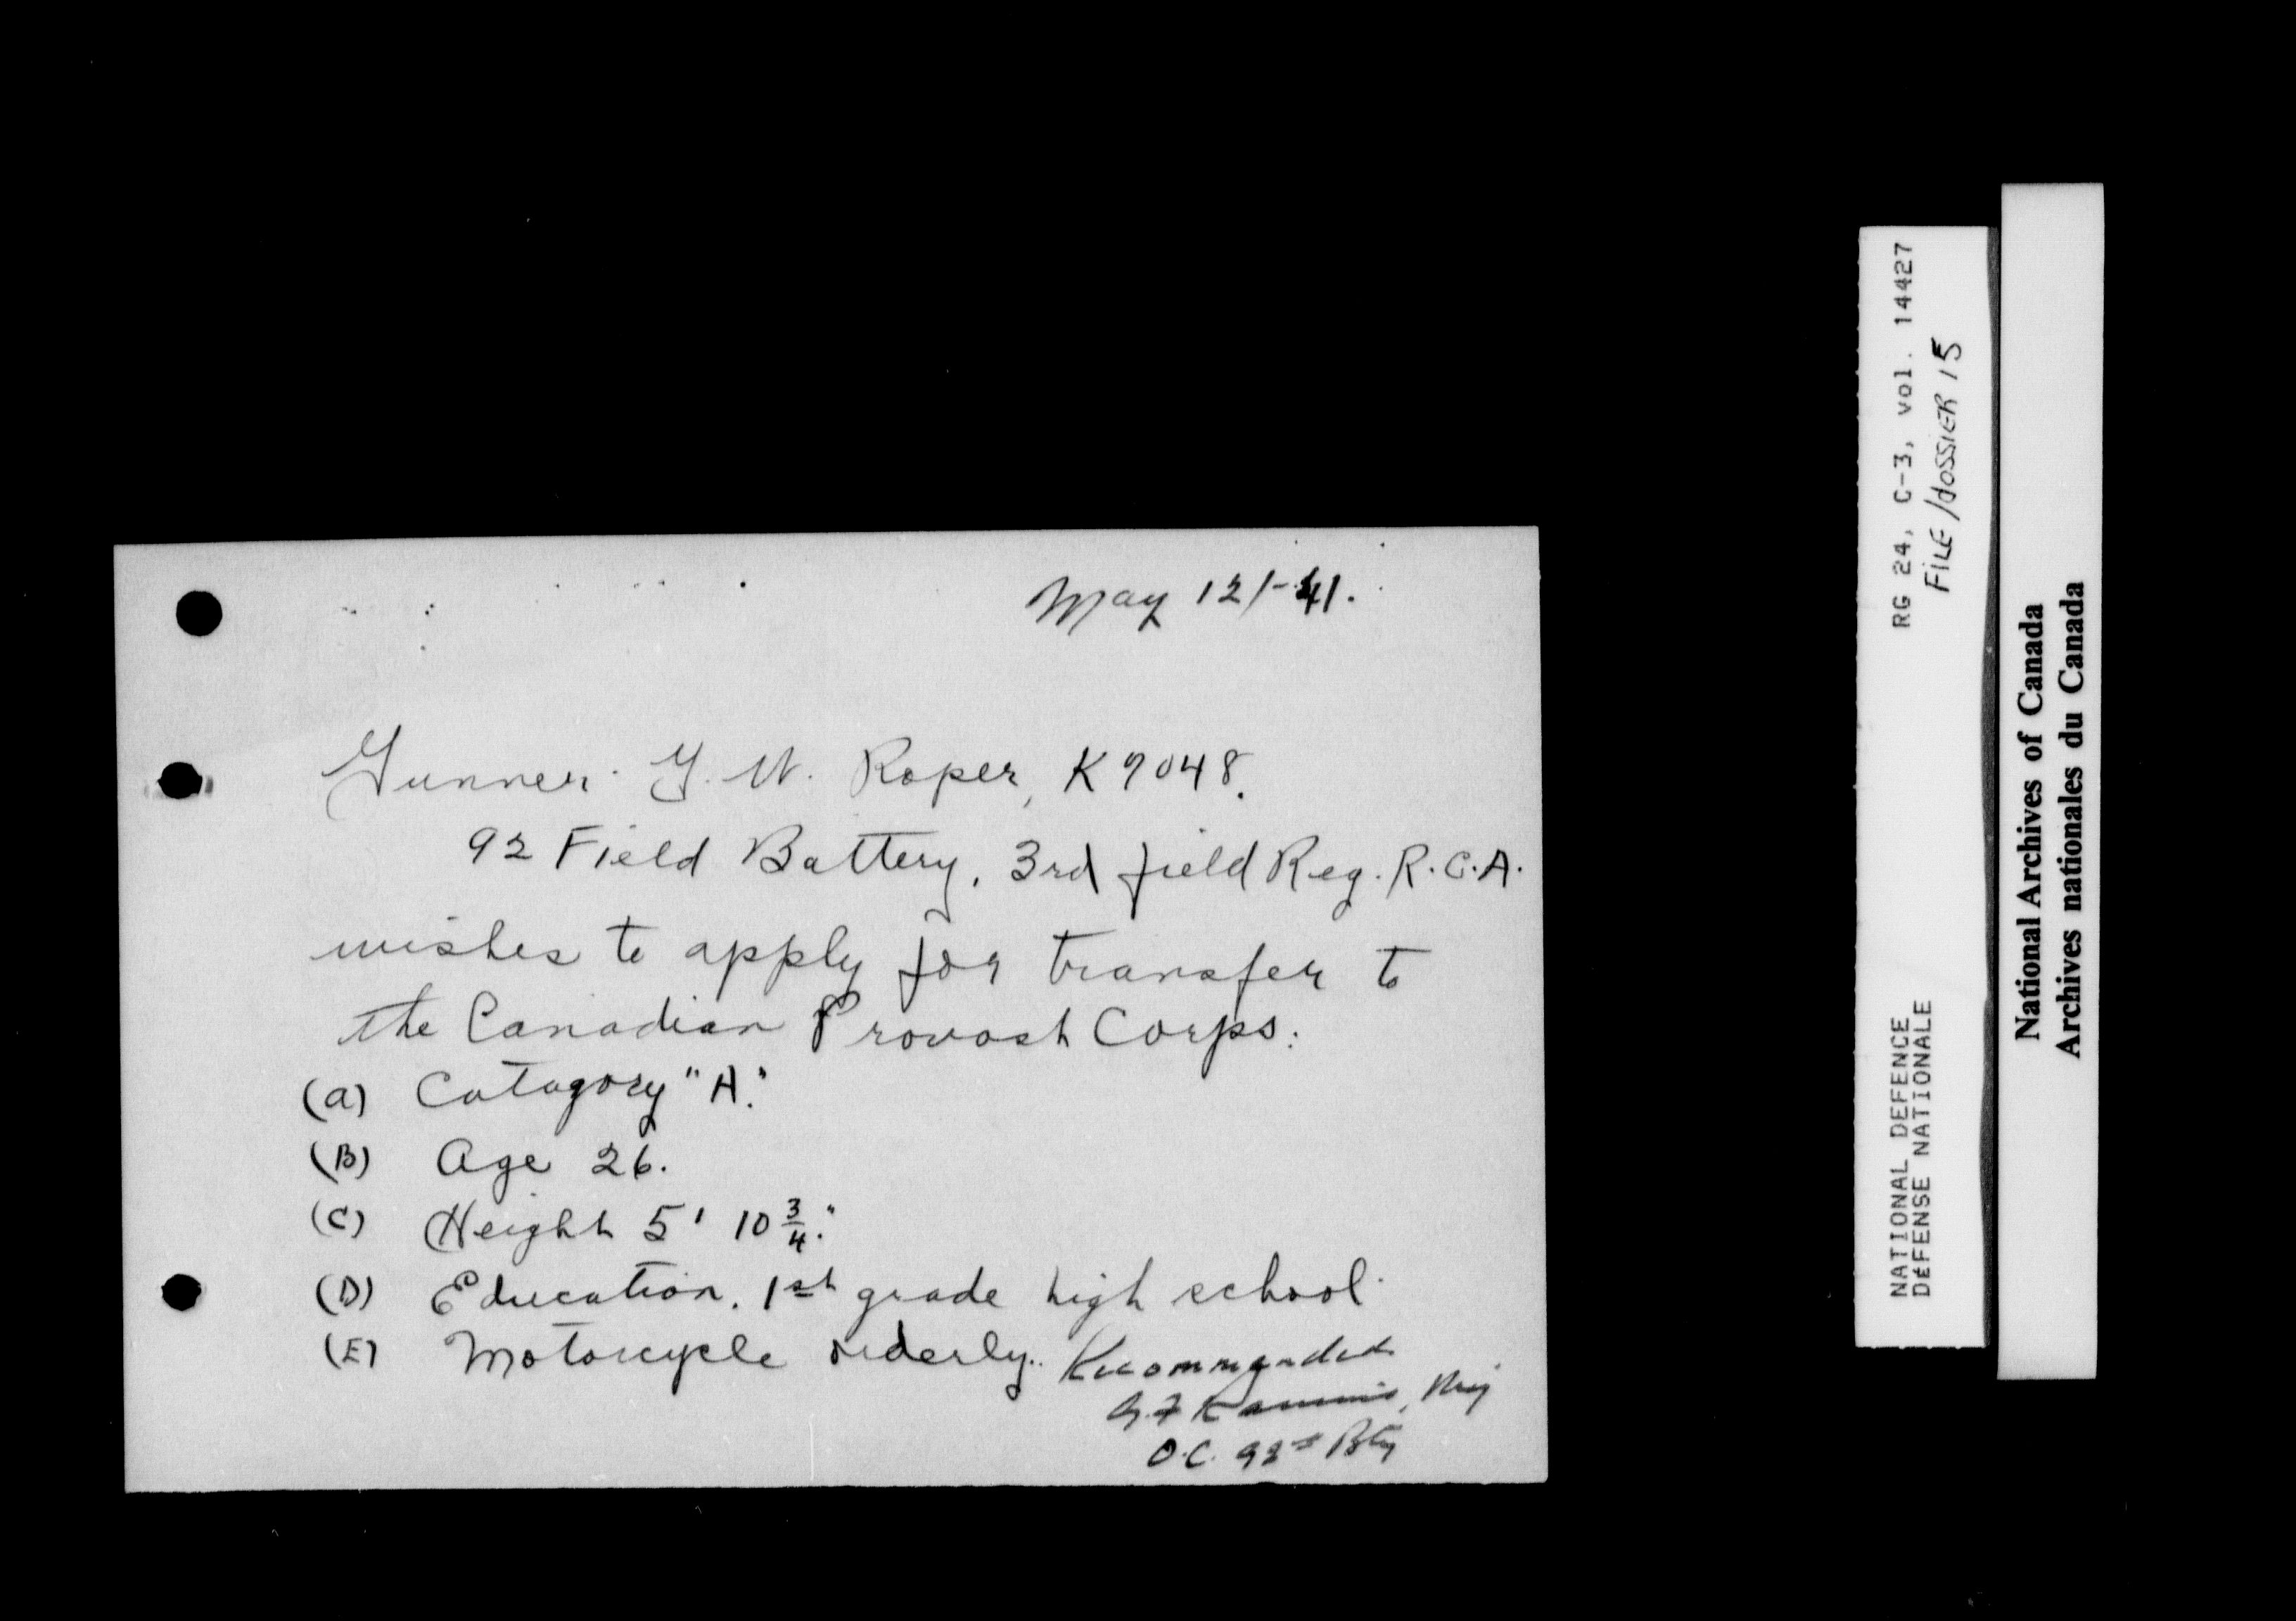 May 12/-41.
Gunner. G. W. Roper, K9048.
92 Field Battery, 3rd field Reg. R.C.A.
wishes to apply for transfer to
the Canadian Provost Corps:
(a) Catagory "A."
(B) Age 26.
(C) Height 5' 10 3/4."
(D) Education. 1st grade high school.
(E) Motorcycle orderly.. Recommended
Maj
O.C. 92nd Bty
RG 24, C-3, vol. 14427
FILE/dossier 15
NATIONAL DEFENCE
DÉFENSE NATIONALE
National Archives of Canada
Archives nationales du Canada